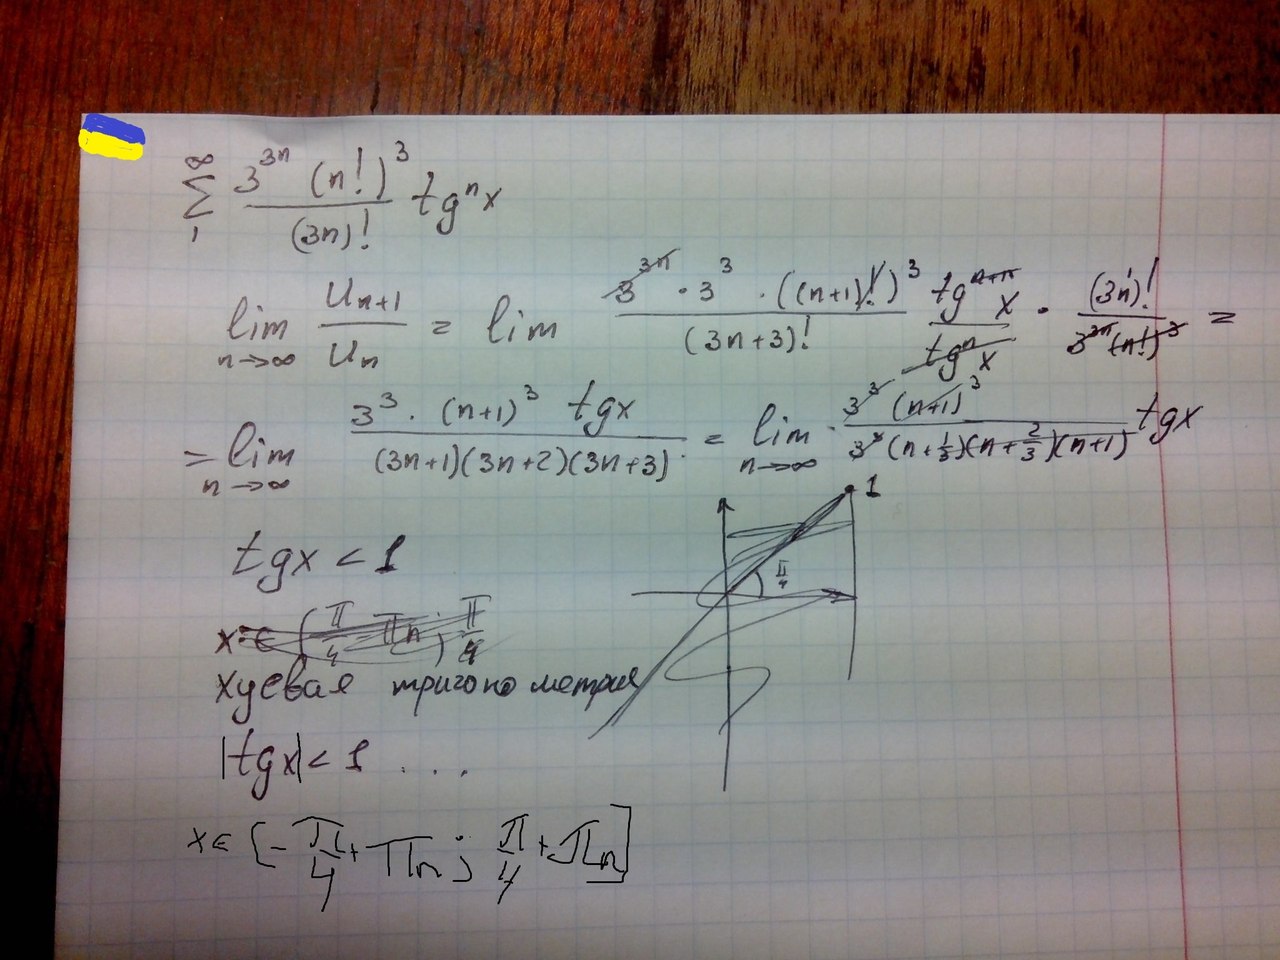 ∞
∑ 3^{3n} (n!)^3 / (3n)! tg^n x
1
lim n→∞ U_{n+1} / U_n = lim 3^{3n} · 3^3 · ((n+1)!)^3 / (3n+3)! tg^{n+1} x / tg^n x · (3n)! / 3^{3n} (n!)^3 =
= lim n→∞ 3^3 · (n+1)^3 tgx / (3n+1)(3n+2)(3n+3) = lim n→∞ 3^3 (n+1)^3 / 3^3 (n+1/3)(n+2/3)(n+1) tgx
1
π/4
tgx < 1
x ∈ (π/4 πn; π/4
хуевая тригонометрия
|tgx| < 1 . . .
x ∈ [-π/4 + πn ; π/4 + πn]